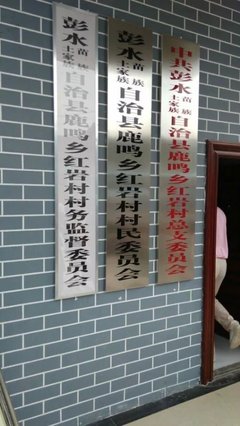 彭水苗族土家族自治县鹿鸣乡红岩村村务监督委员会
彭水苗族土家族自治县鹿鸣乡红岩村村民委员会
中共彭水苗族土家族自治县鹿鸣乡红岩村总支委员会